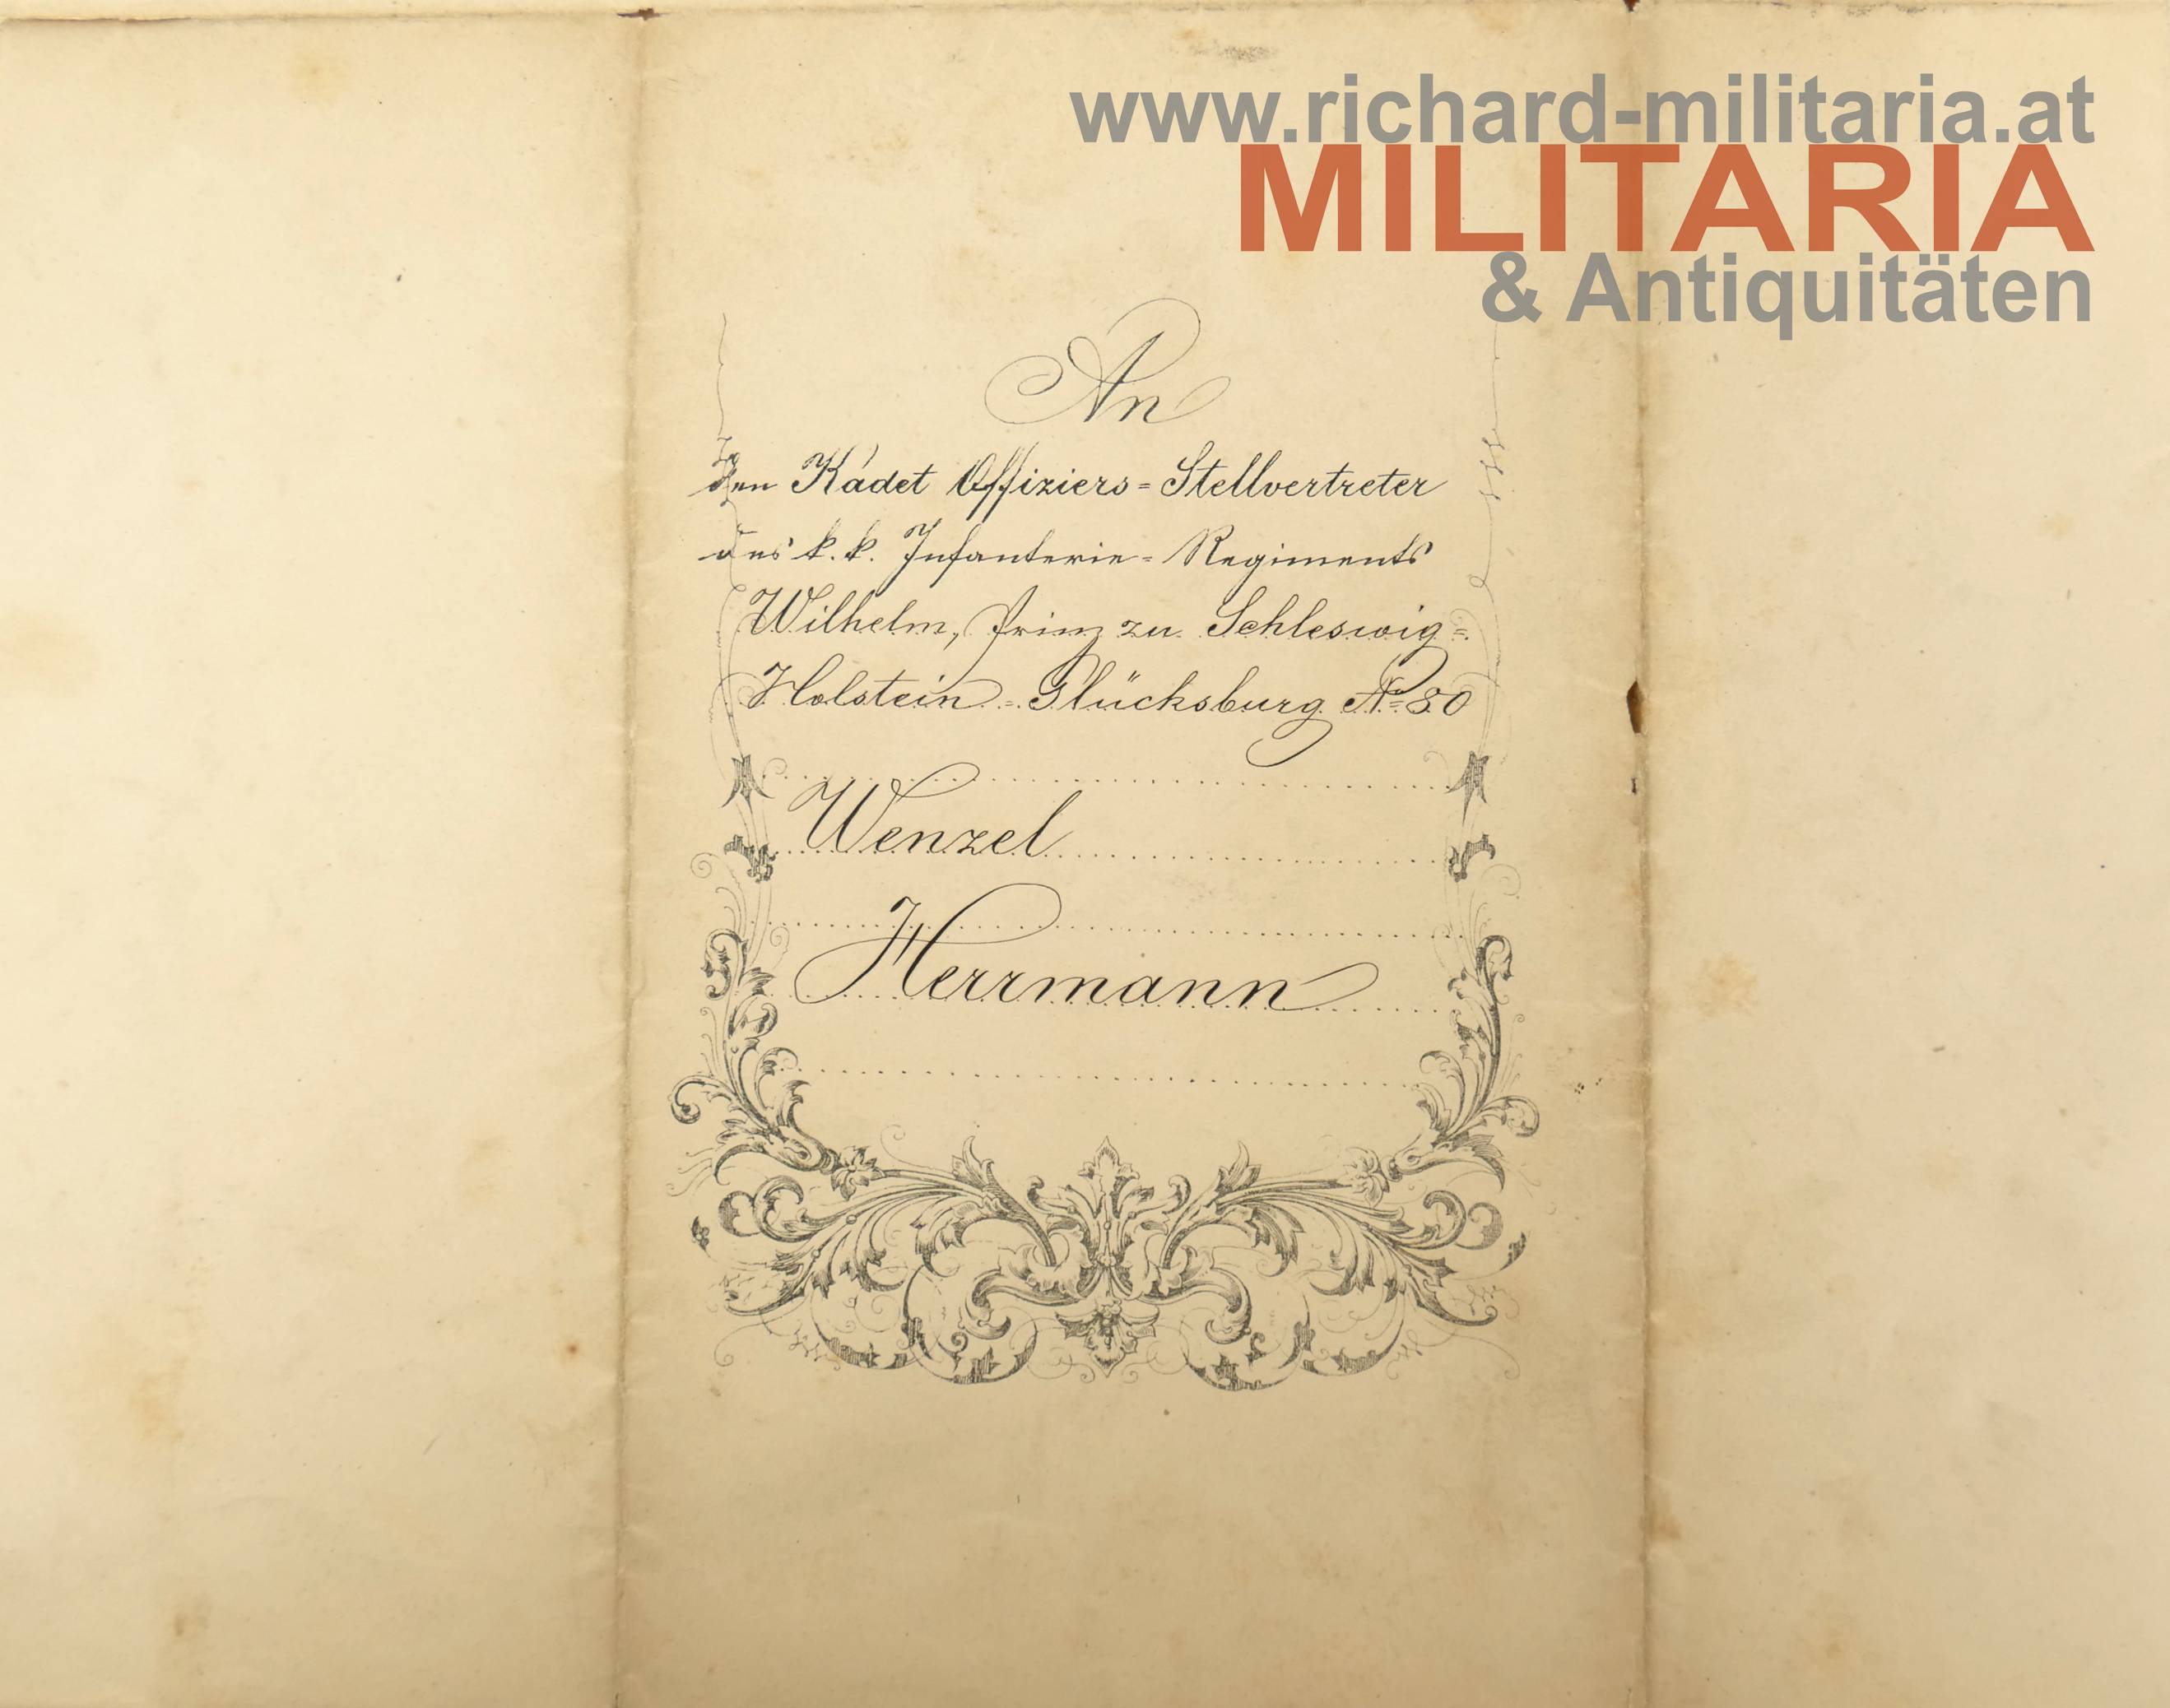 www.richard-militaria.at
MILITARIA
& Antiquitäten
An
den Kadet Offiziers=Stellvertreter
des k. k. Infanterie=Regiments
Wilhelm, Prinz zu Schleswig=
Holstein=Glücksburg No 80
Wenzel
Herrmann